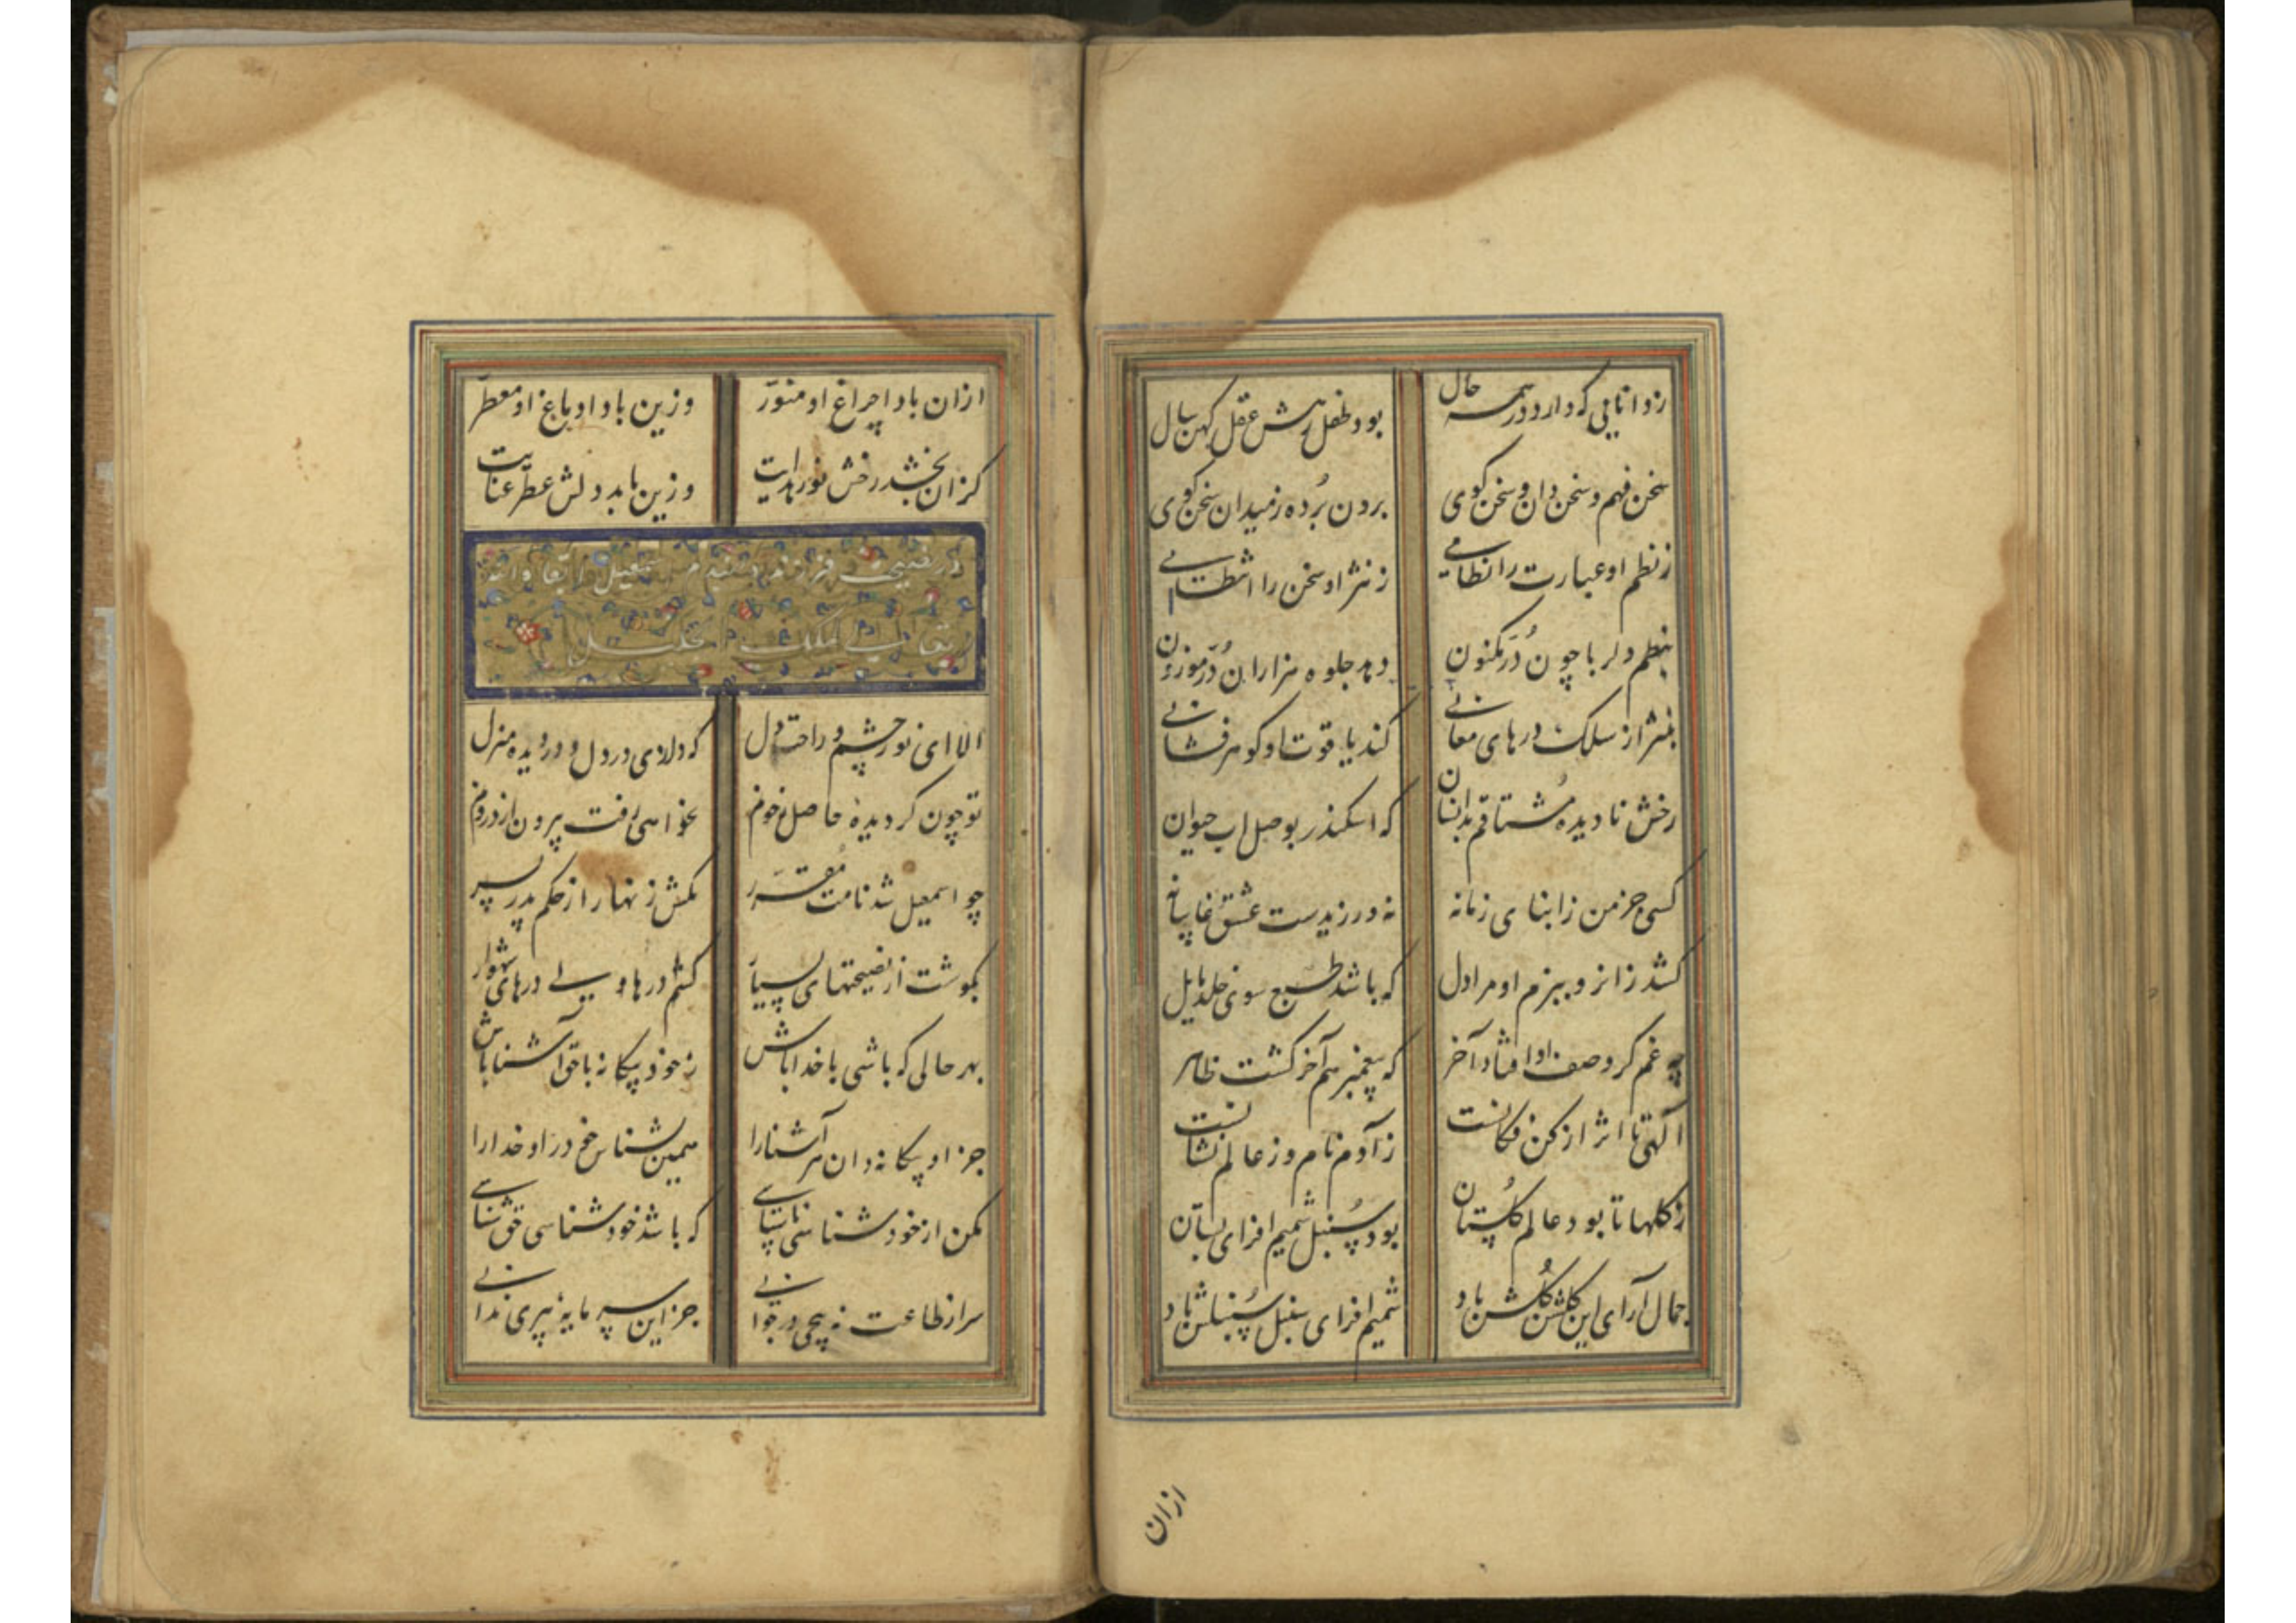 ز دانایی که دارد در همه حال
بود طفل رهش عقل کهن سال
سخن فهم و سخن دان و سخن کوی
برون برده ز میدان سخن کوی
ز نظم او عبارت را نظامی
ز نثر او سخن را انتظامی
بنظم دلربا چون در مکنون
دهد جلوه هزاران در موزون
بنثر از سلک درهای معانی
کند یاقوت او کوهر فشانی
رخش نادیده مشتاقم بدانسان
که اسکندر بوصل اب حیوان
کسی جز من ز ابنای زمانه
نه ورزیدست عشق غایبانه
کشد زانرو ببزم او مرا دل
که باشد طبع سوی خلد مایل
چه غم کر وصف او افتاد آخر
که پیغمبر هم آخر کشت ظاهر
آلهی تا اثر از کن فکانست
ز آدم نام و ز عالم نشانست
ز کلها تا بود عالم کلستان
بود سنبل شمیم افزای بستان
جمال آرای این کلشن کلش باد
شمیم افزای سنبل سنبلش باد
ازان
ازان بادا چراغ او منور
وزین بادا دماغ او معطر
کزان بخشد رخش نور هدایت
وزین یابد دلش عطر عنایت
در نصیحت فرزند اسمعیل ابقاه الله
الا ای نور چشم و راحت دل
که داری در دل و در دیده منزل
تو چون کردیده حاصل ز خونم
نخواهی رفت بیرون از درونم
چو اسمعیل شد نامت مقرر
مکش زنهار از حکم پدر سر
بکوشت از نصیحتهای بسیار
کشم درها ولی درهای شهوار
بهر حالی که باشی با خدا باش
ز خود بیکانه با حق آشنا باش
جز او بیکانه دان هر آشنا را
همین بشناس و در او خدا را
مکن از خود شناسی ناسپاسی
که باشد خود شناسی حق شناسی
سر از طاعت نه پیچی در جوانی
جز این سرمایه پیری ندانی